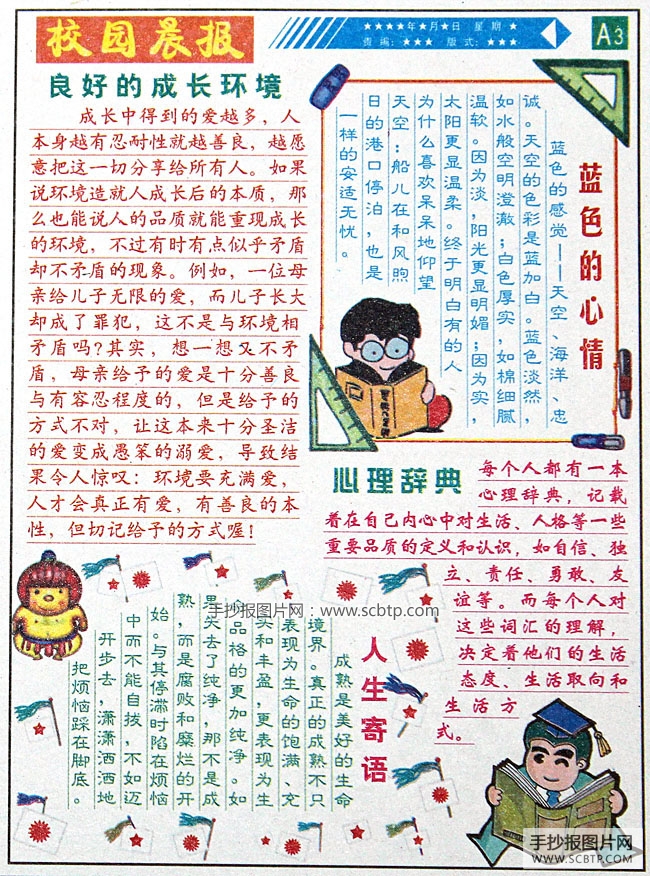 校园晨报
★★★★年★月★日 星期★
责编：★★★ 版式：★★★
A3
良好的成长环境
成长中得到的爱越多，人
本身越有忍耐性就越善良，越愿
意把这一切分享给所有人。如果
说环境造就人成长后的本质，那
么也能说人的品质就能重现成长
的环境，不过有时有点似乎矛盾
却不矛盾的现象。例如，一位母
亲给儿子无限的爱，而儿子长大
却成了罪犯，这不是与环境相
矛盾吗?其实，想一想又不矛
盾，母亲给予的爱是十分善良
与有容忍程度的，但是给予的
方式不对，让这本来十分圣洁
的爱变成愚笨的溺爱，导致结
果令人惊叹：环境要充满爱，
人才会真正有爱，有善良的本
性，但切记给予的方式喔！
蓝色的心情
蓝色的感觉——天空、海洋、忠
诚。天空的色彩是蓝加白。蓝色淡然，
如水般空明澄澈；白色厚实，如棉细腻
温软。因为淡，阳光更显明媚；因为实，
太阳更显温柔。终于明白有的人
为什么喜欢呆呆地仰望
天空：船儿在和风煦
日的港口停泊，也是
一样的安适无忧。
心理辞典
每个人都有一本
心理辞典，记载
着在自己内心中对生活、人格等一些
重要品质的定义和认识，如自信、独
立、责任、勇敢、友
谊等。而每个人对
这些词汇的理解，
决定着他们的生活
态度、生活取向和
生活方
式。
手抄报图片网：www.scbtp.com
人生寄语
成熟是美好的生命
境界。真正的成熟不只
表现为生命的饱满、充
实和丰盈，更表现为生
命品格的更加纯净。如
果失去了纯净，那不是成
熟，而是腐败和糜烂的开
始。与其停滞时陷在烦恼
中而不能自拔，不如迈
开步去，潇潇洒洒地
把烦恼踩在脚底。
手抄报图片网
WWW.SCBTP.COM